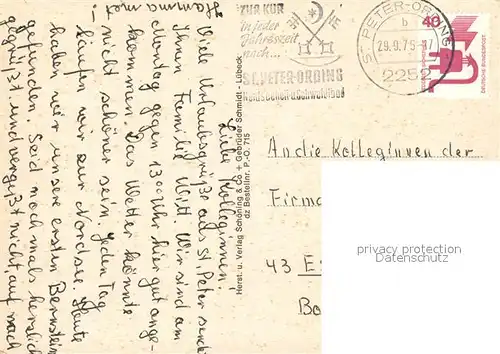 Liebe Kolleginnen!
Viele Urlaubsgrüße aus St. Peter sendet
Ihnen Familie Witt. Wir sind am
Montag gegen 13 00 Uhr hier gut ange-
kommen. Das Wetter könnte
nicht schöner sein. Jeden Tag
laufen wir zur Nordsee. Heute
haben wir unsere ersten Bernstein
gefunden. Seid noch mals herzlich
gegrüßt und vergeßt nicht, auf nach
Hamma met!
Herst. u. Verlag Schöning & Co + Gebrüder Schmidt - Lübeck
dz Bestellnr. P.-O. 715
ZUR KUR
in jeder
Jahreszeit
nach...
ST. PETER-ORDING
Nordseeheil- u. Schwefelbad
ST PETER-ORDING
b
29.9.75-17
2252
40
DEUTSCHE BUNDESPOST
An die Kolleginnen der
Firma
43 E
Bo
privacy protection
www.oldthing.de